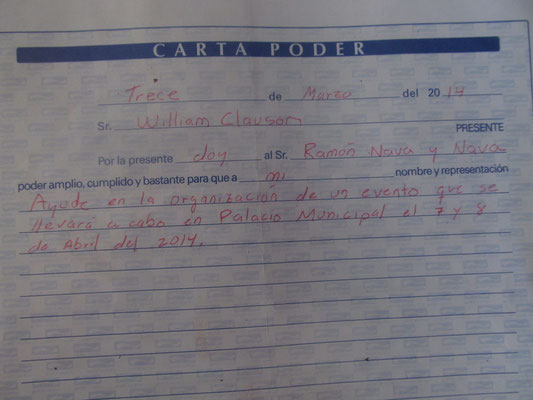 CARTA PODER
Trece de Marzo del 2014
Sr. William Clauson
PRESENTE
Por la presente doy al Sr. Ramón Nava y Nava
poder amplio, cumplido y bastante para que a mi nombre y representación
Ayude en la organización de un evento que se
llevará a cabo en Palacio Municipal el 7 y 8
de Abril del 2014.